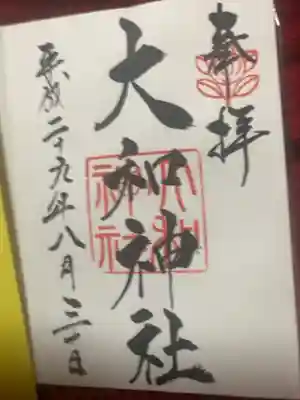 奉拝
大和神社
平成二十九年八月三十一日
大和神社